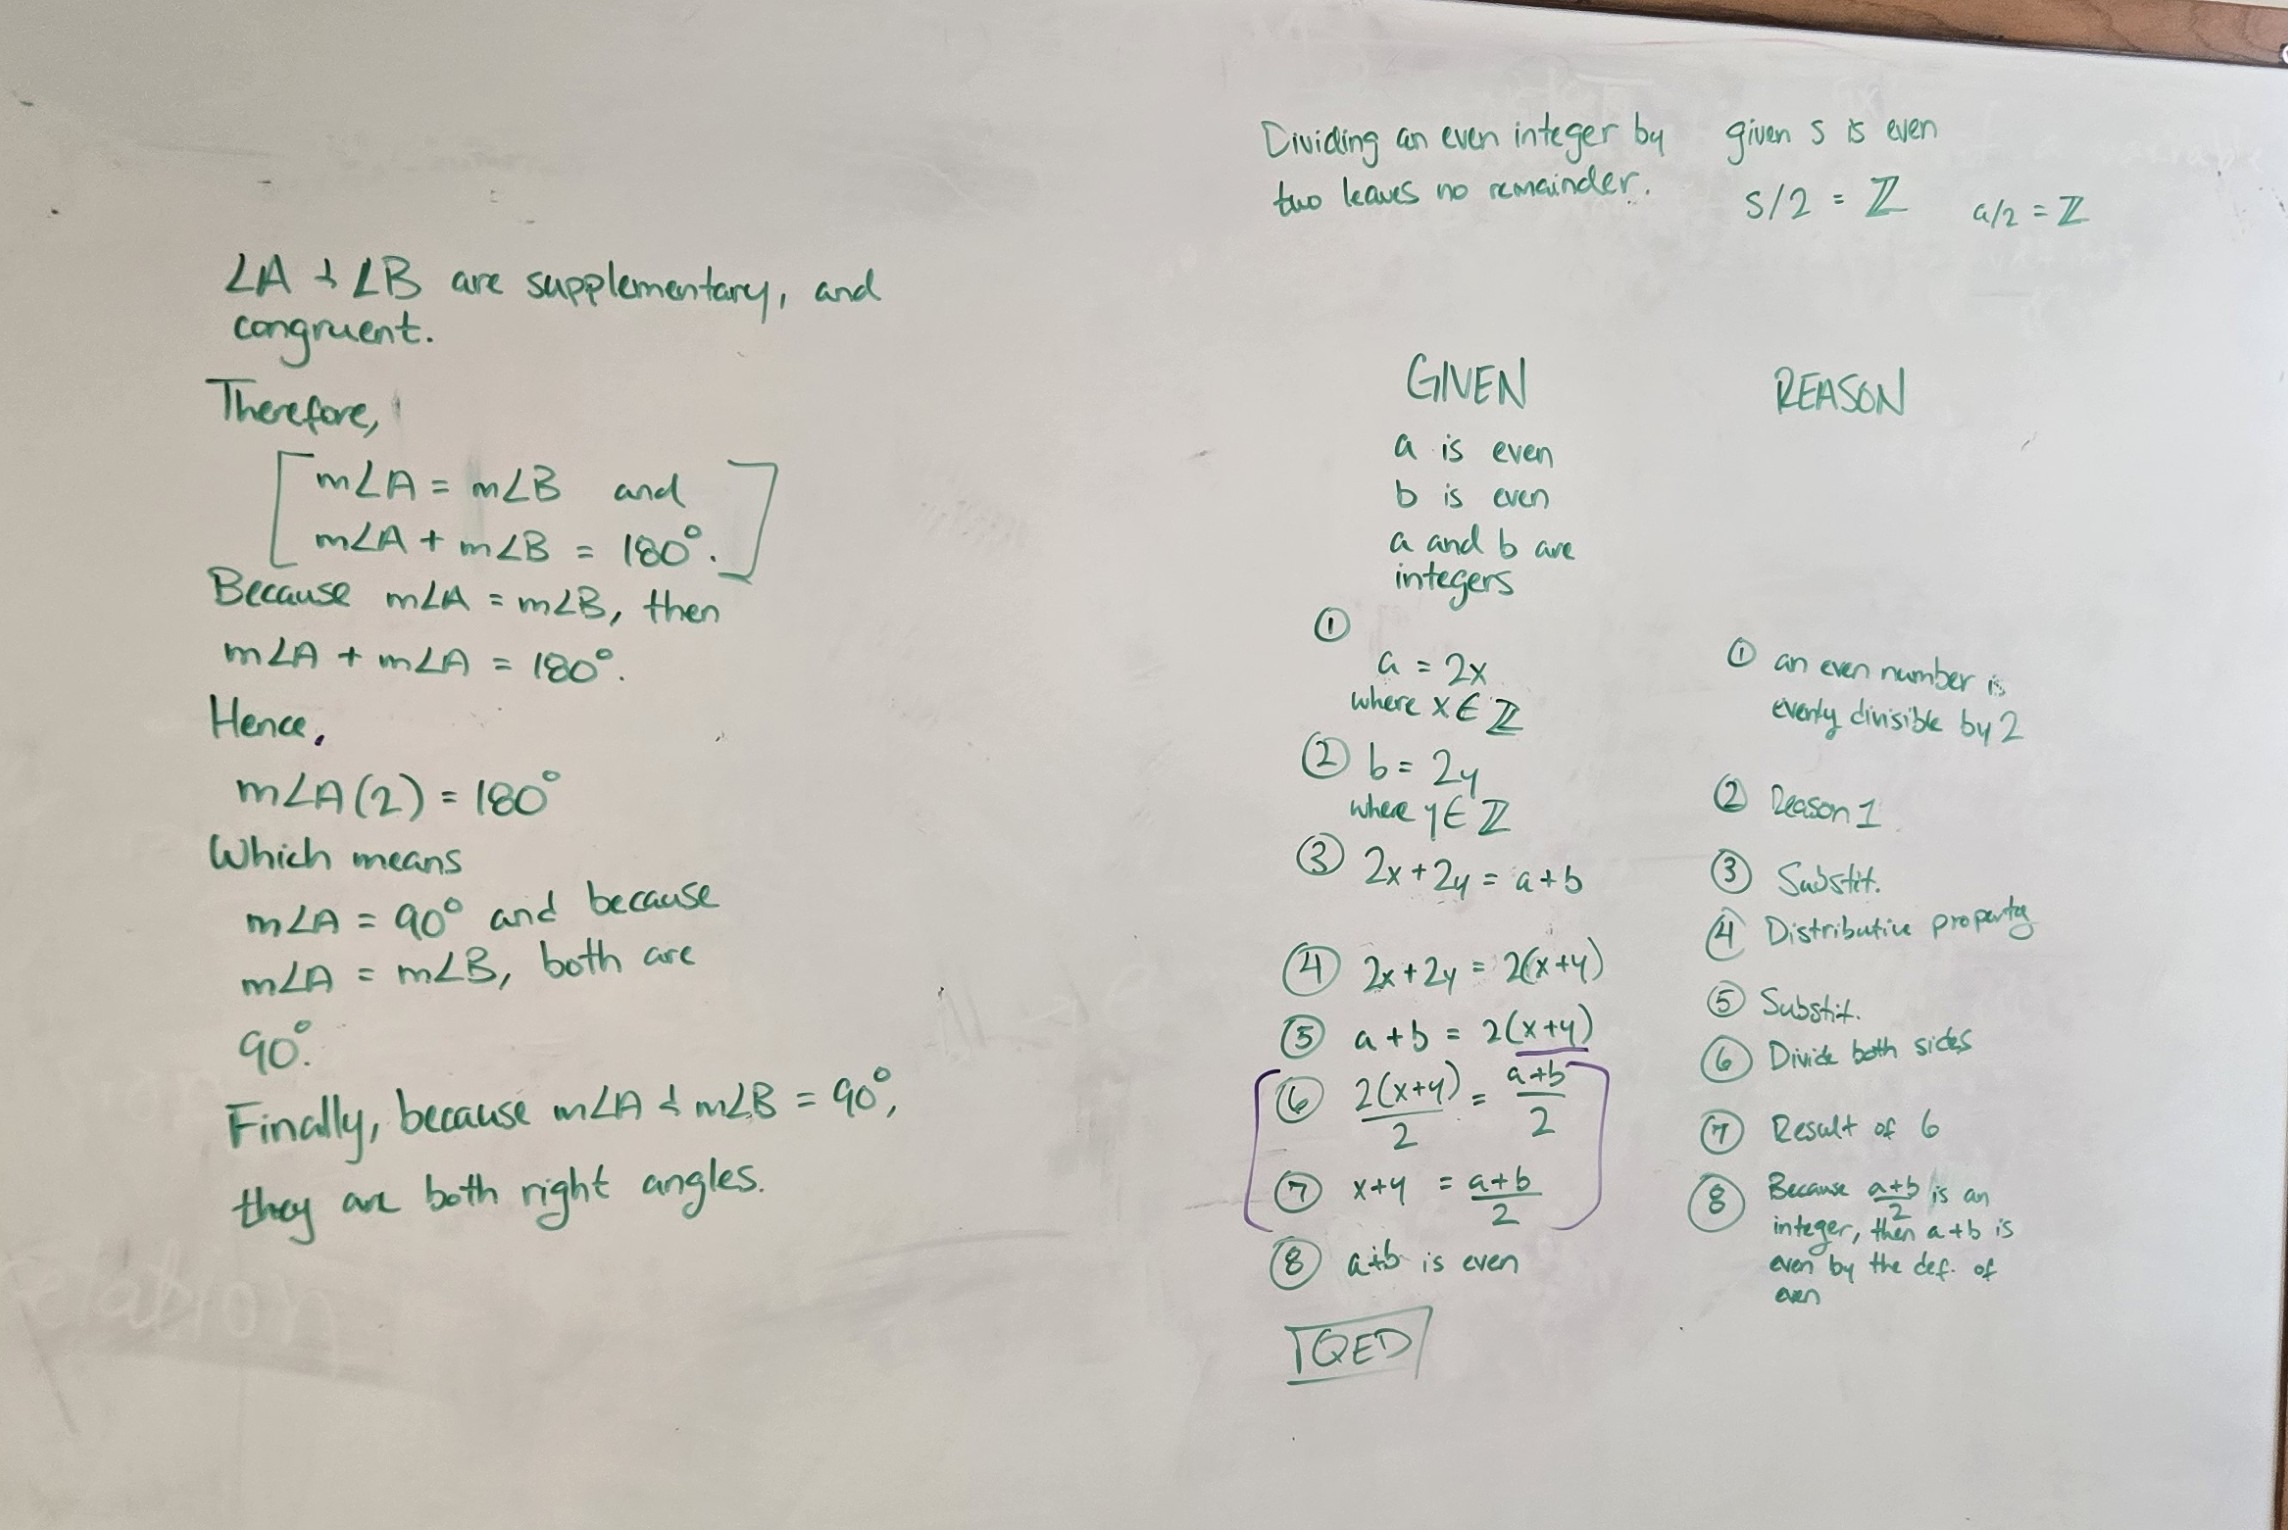 ∠A & ∠B are supplementary, and
congruent.
Therefore,
m∠A = m∠B and
m∠A + m∠B = 180°.
Because m∠A = m∠B, then
m∠A + m∠A = 180°.
Hence,
m∠A(2) = 180°
Which means
m∠A = 90° and because
m∠A = m∠B, both are
90°.
Finally, because m∠A & m∠B = 90°,
they are both right angles.
Dividing an even integer by
two leaves no remainder.
given s is even
s/2 = ℤ
a/2 = ℤ
GIVEN
a is even
b is even
a and b are
integers
①
a = 2x
where x ∈ ℤ
② b = 2y
where y ∈ ℤ
③ 2x + 2y = a + b
④ 2x + 2y = 2(x+y)
⑤ a + b = 2(x+y)
⑥ 2(x+y)/2 = a+b/2
⑦ x+y = a+b/2
⑧ a+b is even
QED
REASON
① an even number is
evenly divisible by 2
② Reason 1
③ Substit.
④ Distributive property
⑤ Substit.
⑥ Divide both sides
⑦ Result of 6
⑧ Because a+b/2 is an
integer, then a+b is
even by the def. of
even